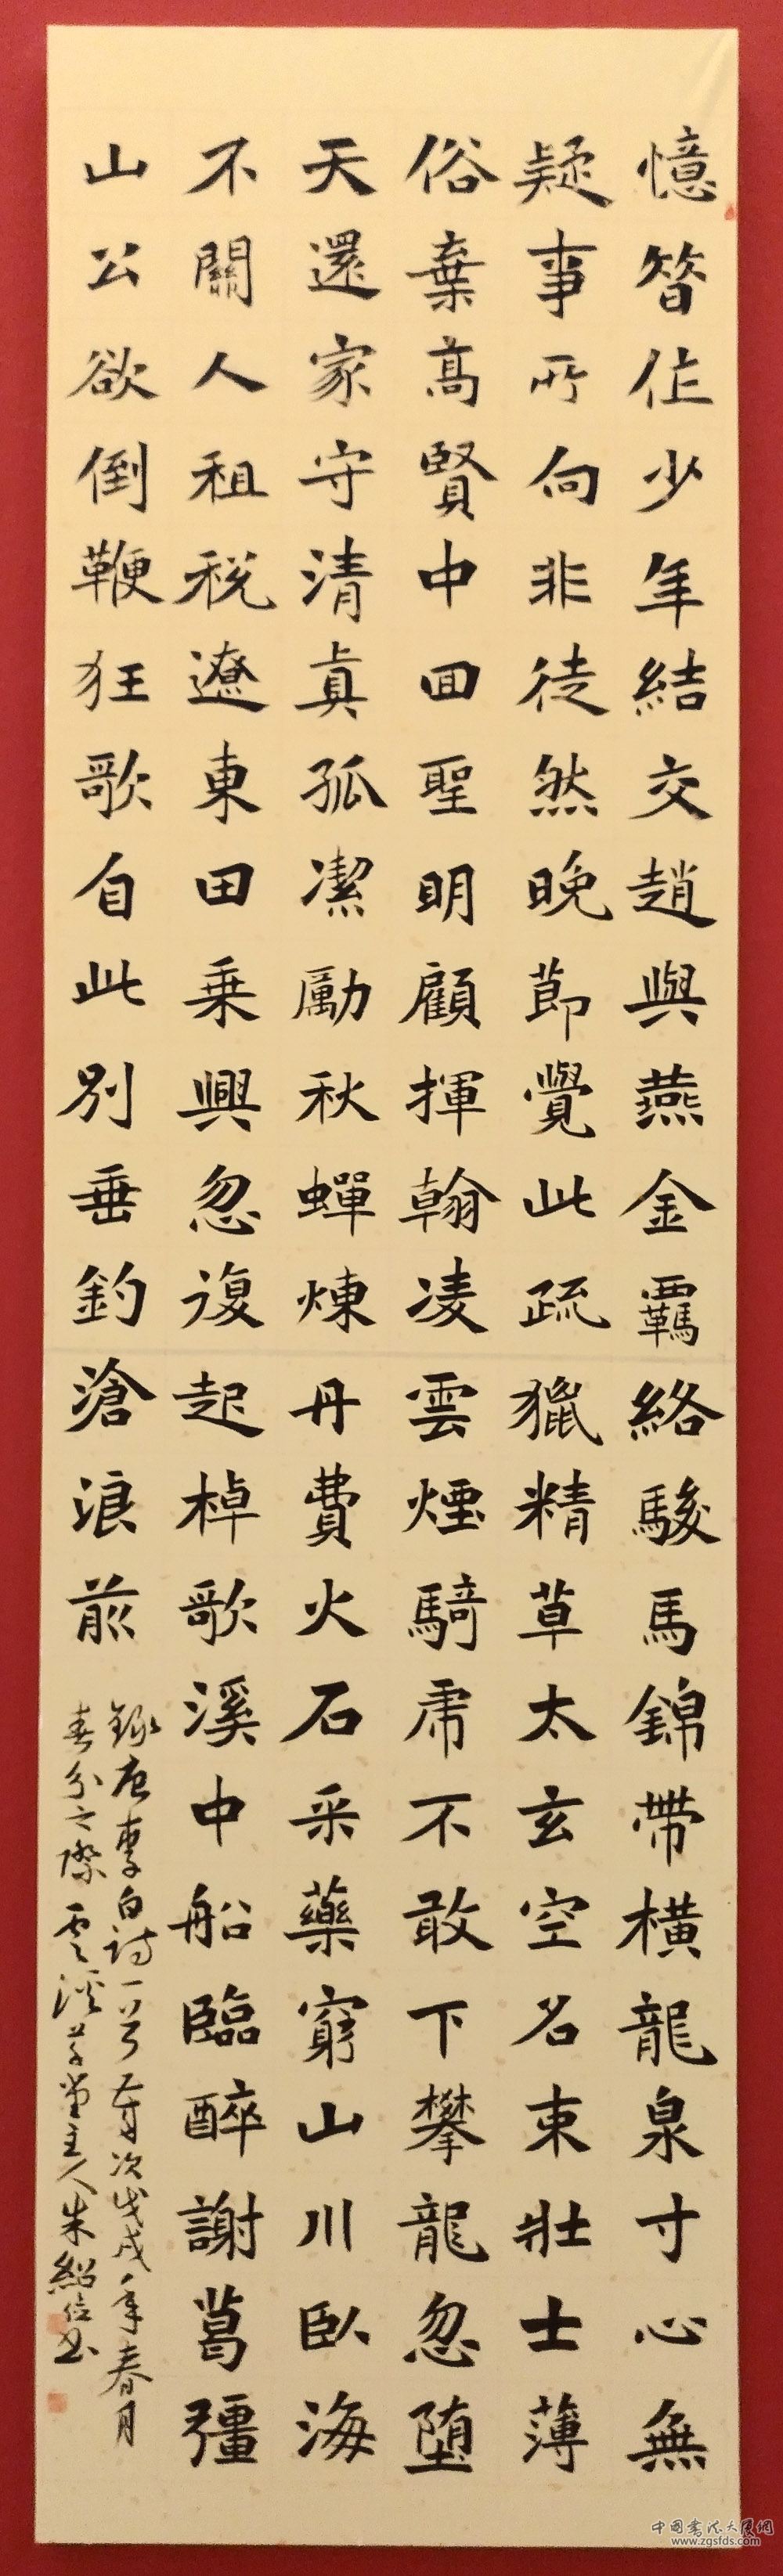 憶昝作少年結交趙與燕金羈絡駿馬錦帶橫龍泉寸心無
疑事所向非徒然晚節覺此疏獵精草太玄空名束壯士薄
俗棄高賢中回聖明顧揮翰凌雲煙騎虎不敢下攀龍忽墮
天還家守清真孤潔勵秋蟬煉丹費火石采藥窮山川臥海
不關人租稅遼東田乘興忽復起棹歌溪中船臨醉謝葛彊
山公欲倒鞭狂歌自此別垂釣滄浪前
錄唐李白詩一首歲次戊戌年春月
春分之際雲溪草堂主人朱紹信書
中國書法大展網
www.zgsfds.com